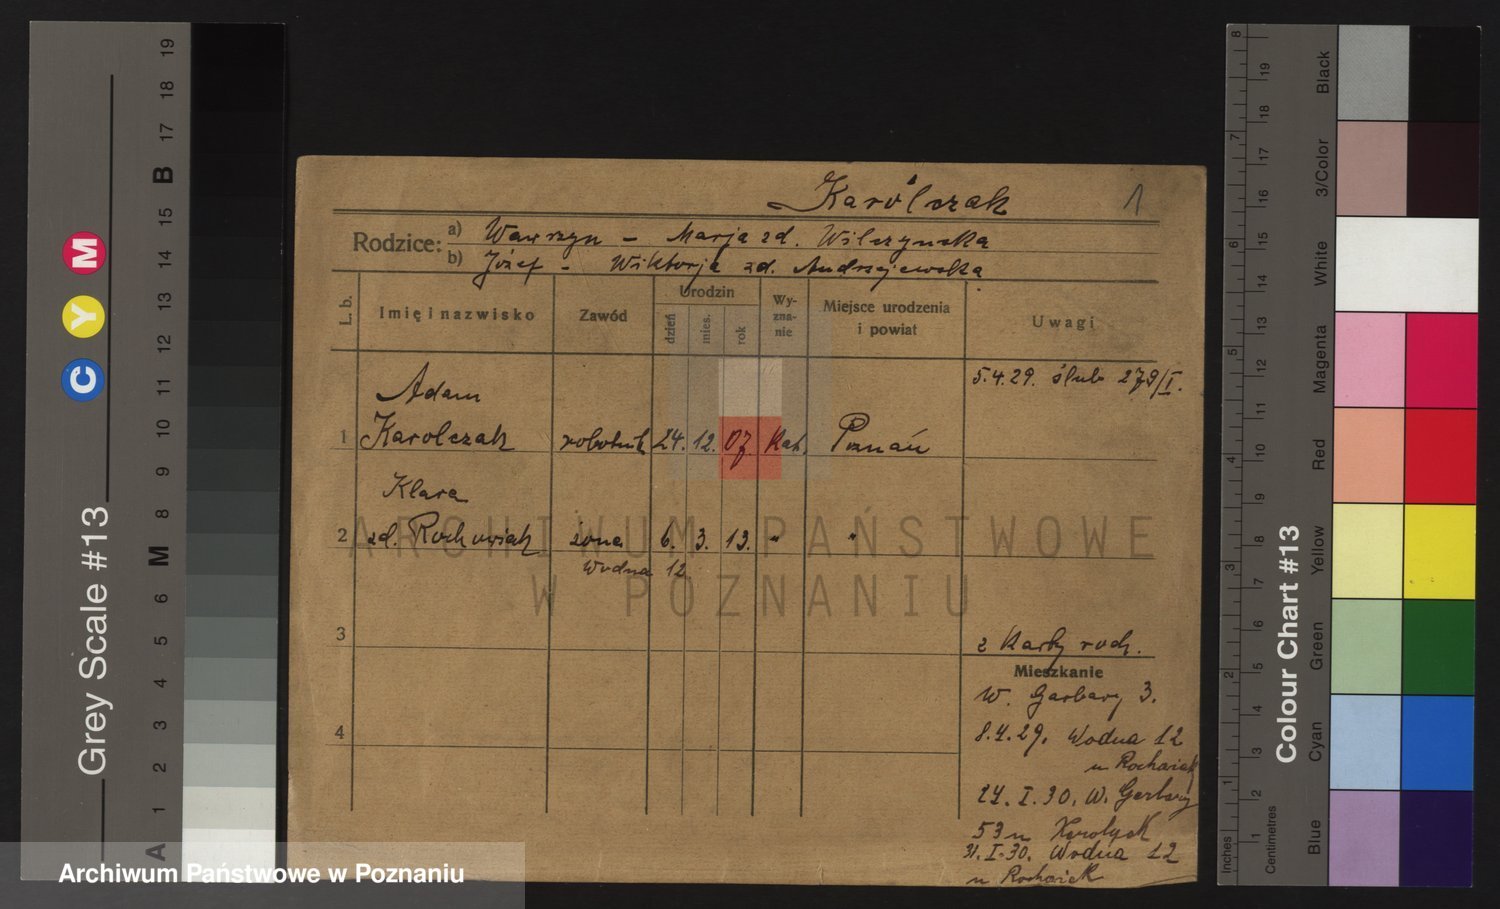 Karólczak 1
Rodzice: a) Wawrzyn - Marja zd. Wilczynska
b) Józef - Wiktorja zd. Andrzejewska
L. b. Imię i nazwisko Zawód Urodzin dzień mies. rok Wy-zna-nie Miejsce urodzenia i powiat Uwagi
5.4.29. ślub 279/I.
Adam
1 Karolczak robotnik 24. 12. 07. Kat. Poznań
Klara
2 zd. Rochowiak żona 6. 3. 13. " "
Wodna 12
ARCHIWUM PAŃSTWOWE
W POZNANIU
3
z Karty rodz.
Mieszkanie
W. Garbary 3.
4
8.4.29. Wodna 12
u Rochowiak
24. I. 30. W. Garbary
53 u
31. I. 30. Wodna 12
u Rochowiak
Archiwum Państwowe w Poznaniu
Grey Scale #13
C Y M
A 1 2 3 4 5 6 M 8 9 10 11 12 13 14 15 B 17 18 19
Colour Chart #13
Blue Cyan Green Yellow Red Magenta White 3/Color Black
Inches 1 2 3 4 5 6 7 8
Centimetres 1 2 3 4 5 6 7 8 9 10 11 12 13 14 15 16 17 18 19